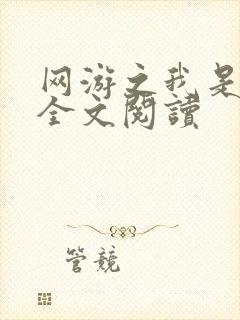 网游之我是
全文閱讀
管競